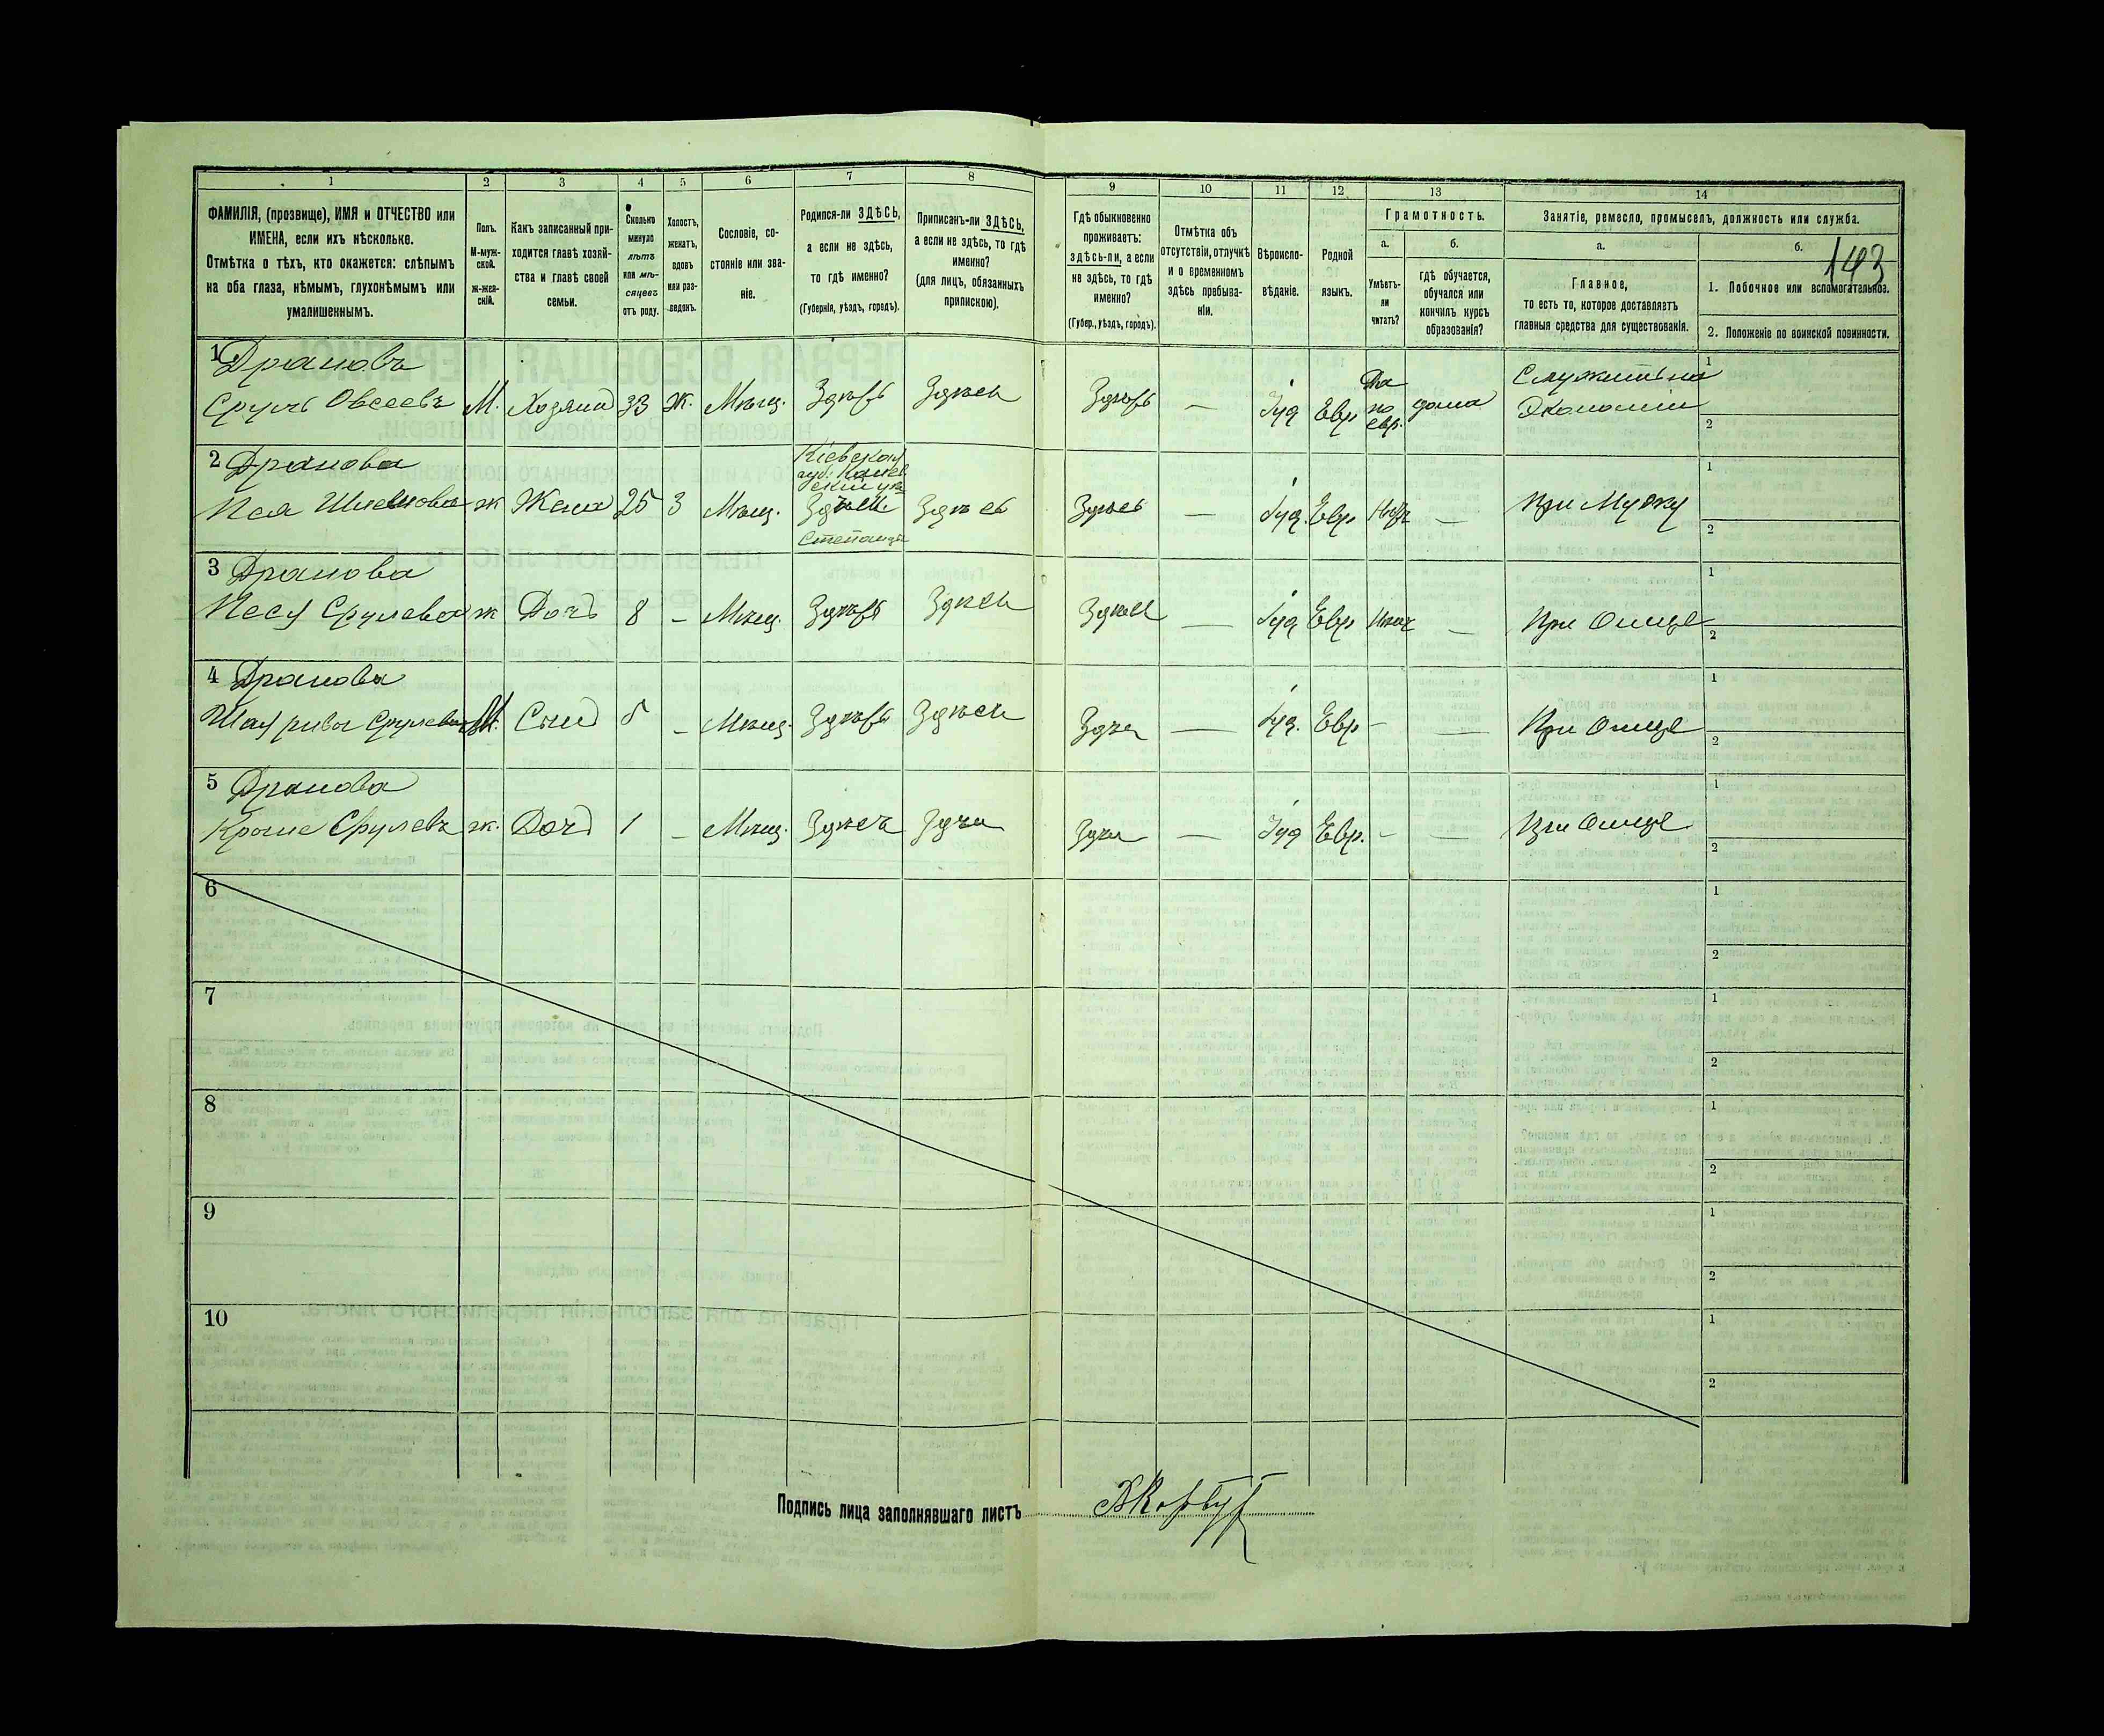 143
1 2 3 4 5 6 7 8 9 10 11 12 13 14
ФАМИЛІЯ, (прозвище), ИМЯ и ОТЧЕСТВО или
ИМЕНА, если ихъ нѣсколько.
Отмѣтка о тѣхъ, кто окажется: слѣпымъ
на оба глаза, нѣмымъ, глухонѣмымъ или
умалишеннымъ.
Полъ.
М-муж-
ской.
ж-жен-
скій.
Какъ записанный при-
ходится главѣ хозяй-
ства и главѣ своей
семьи.
Сколько
минуло
лѣтъ
или мѣ-
сяцевъ
отъ роду.
Холостъ,
женатъ,
вдовъ
или раз-
веденъ.
Сословіе, со-
стояніе или зва-
ніе.
Родился-ли ЗДѢСЬ,
а если не здѣсь,
то гдѣ именно?
(Губернія, уѣздъ, городъ).
Приписанъ-ли ЗДѢСЬ,
а если не здѣсь, то гдѣ
именно?
(для лицъ, обязанныхъ
припискою).
Гдѣ обыкновенно
проживаетъ:
здѣсь-ли, а если
не здѣсь, то гдѣ
именно?
(Губер., уѣздъ, городъ).
Отмѣтка объ
отсутствіи, отлучкѣ
и о временномъ
здѣсь пребыва-
ніи.
Вѣроиспо-
вѣданіе.
Родной
языкъ.
Грамотность.
а.
Умѣетъ-
ли
читать?
б.
гдѣ обучается,
обучался или
кончилъ курсъ
образованія?
Занятіе, ремесло, промыселъ, должность или служба.
а.
Главное,
то есть то, которое доставляетъ
главныя средства для существованія.
б.
1. Побочное или вспомогательное.
2. Положеніе по воинской повинности.
1 Драновъ
Сруль Овсеевъ М. Хозяинъ 33 Ж. Мѣщ. Здѣсь Здѣсь Здѣсь — Іуд Евр Да по евр. дома Служитъ на Экономіи 1 2
2 Дранова
Шлемова ж Жена 25 З Мѣщ. Кіевской губ. Канев ский уѣз Здѣсь Здѣсь Здѣсь — Іуд. Евр Нѣтъ — При Мужу 1 2
3 Дранова
Песу Срулева ж Дочь 8 — Мѣщ. Здѣсь Здѣсь Здѣсь — Іуд Евр — При Отцѣ 1 2
4 Дранова
Срулева М. Сынъ — Мѣщ. Здѣсь Здѣсь Здѣсь — Іуд. Евр — — При Отцѣ 1 2
5 Дранова
Срулевъ ж. Дочь 1 — Мѣщ. Здѣсь Здѣсь Здѣсь — Іуд Евр. — — При Отцѣ 1 2
6 1 2
7 1 2
8 1 2
9 1 2
10 1 2
Подпись лица заполнявшаго листъ